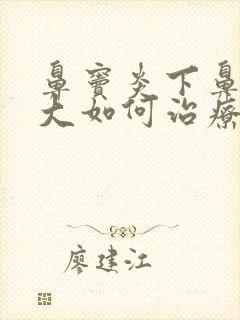 鼻窦炎下鼻
大如何治療
廖建江